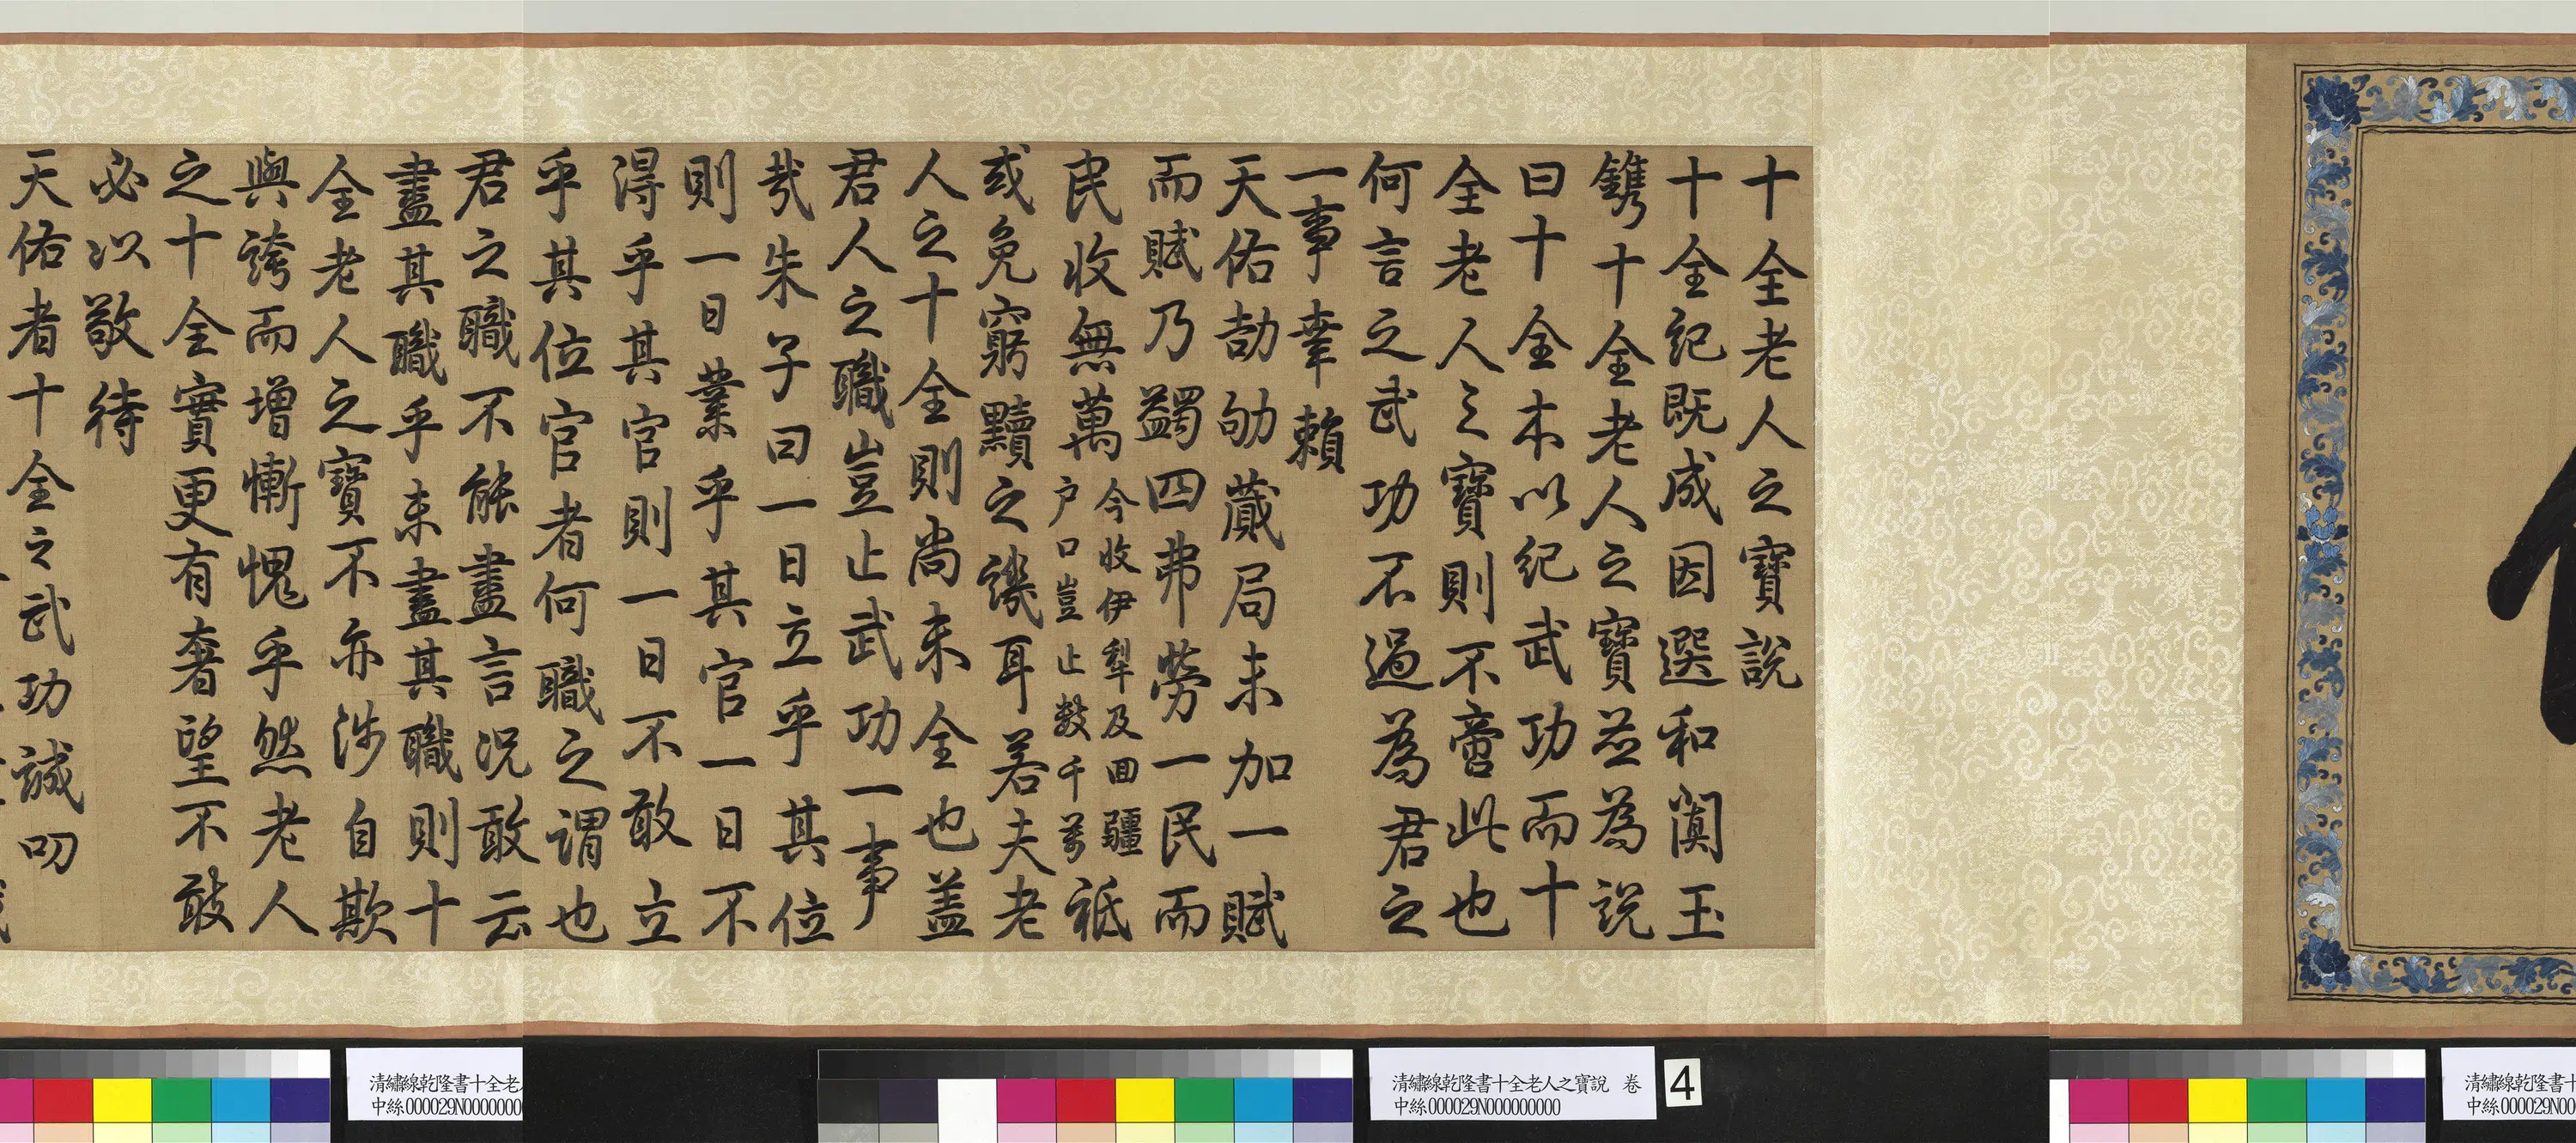 十全老人之寶說
十全紀既成因選和闐玉
鐫十全老人之寶並為說
曰十全本以紀武功而十
全老人之寶則不啻此也
何言之武功不過為君之
一事幸賴
天佑劼劬蕆局未加一賦
而賦乃蠲四弗勞一民而
民收無萬
今收伊犁及回疆
戶口豈止數千萬
祗
或免窮黷之譏耳若夫老
人之十全則尚未全也蓋
君人之職豈止武功一事
哉朱子曰一日立乎其位
則一日業乎其官一日不
得乎其官則一日不敢立
乎其位官者何職之謂也
君之職不能盡言況敢云
盡其職乎未盡其職則十
全老人之寶不亦涉自欺
與誇而增慚愧乎然老人
之十全實更有奢望不敢
必以敬待
天佑者十全之武功誠叨
清繡線乾隆書十全老
中絲000029N0000000
清繡線乾隆書十全老人之寶說 卷
中絲000029N000000000
4
清繡線乾隆書十
中絲000029N00